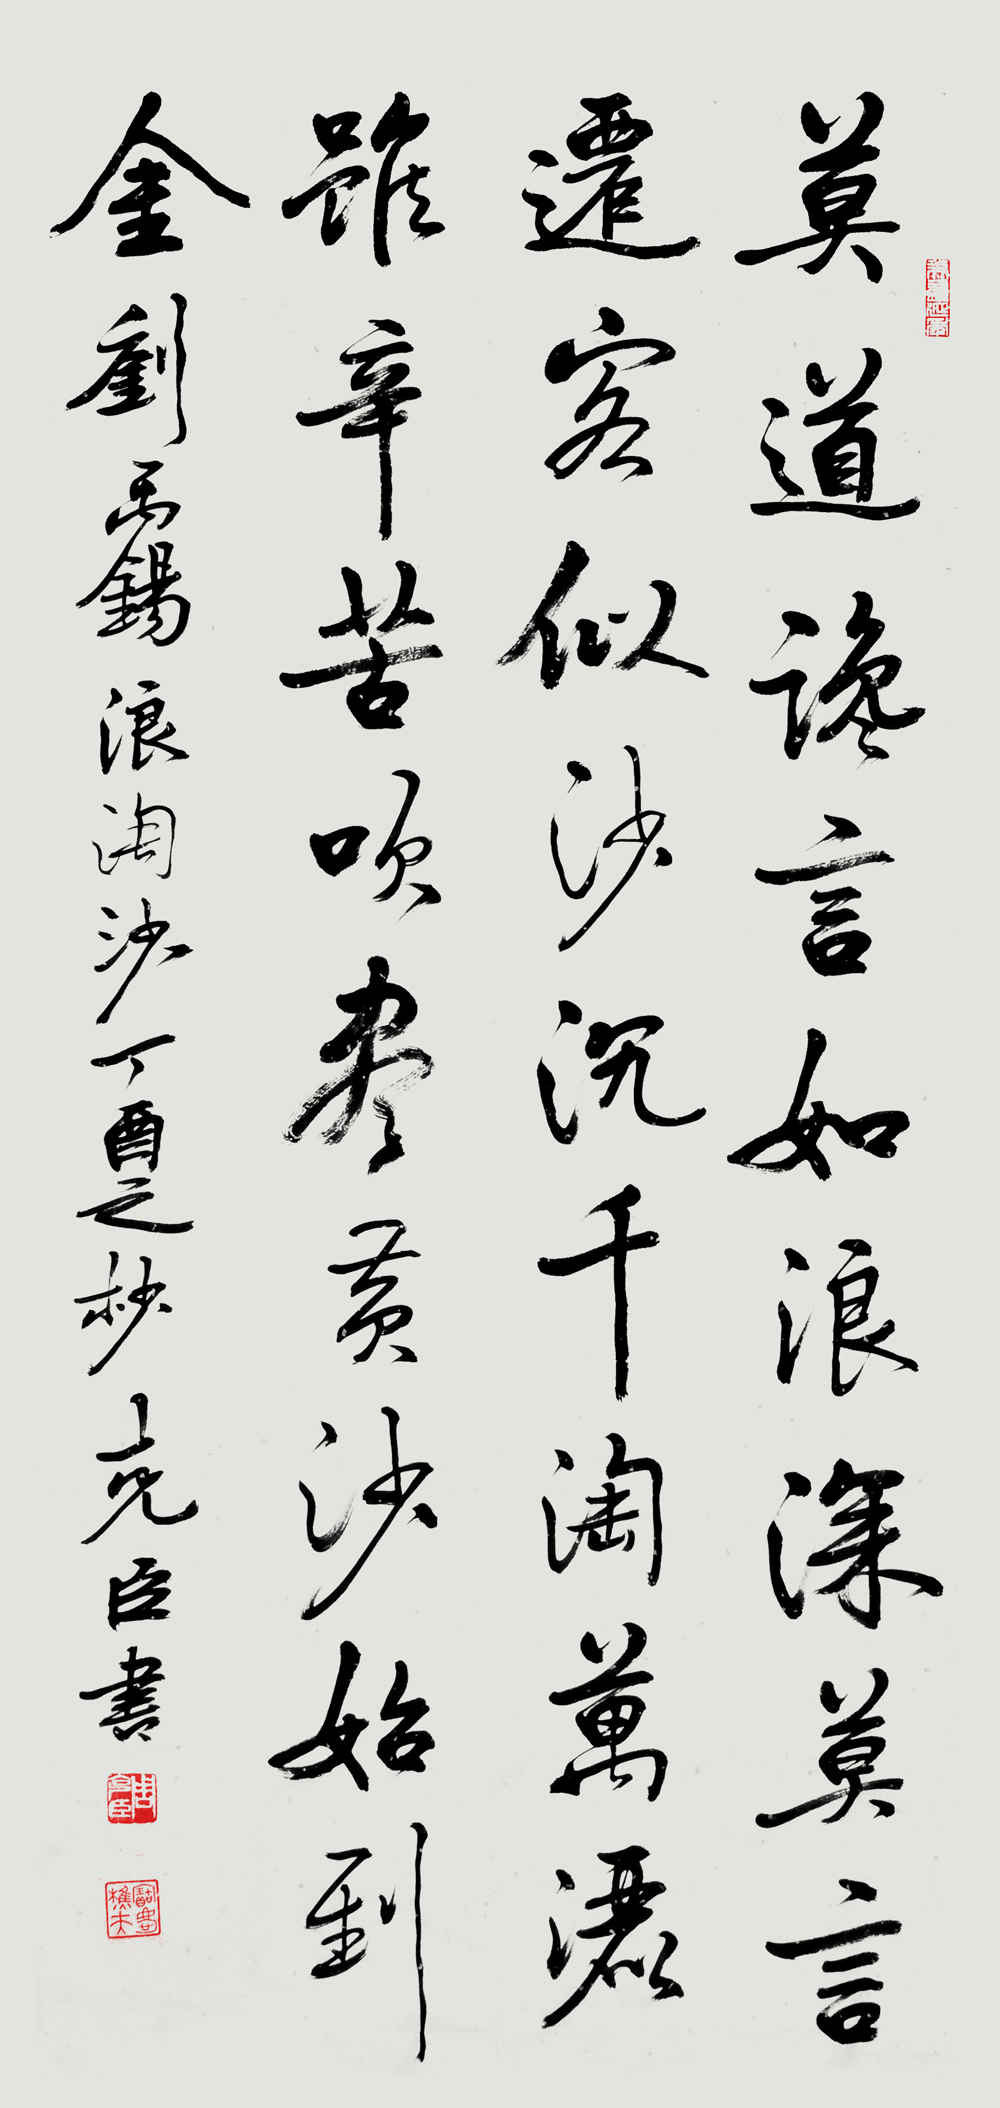 莫道讒言如浪深莫言
遷客似沙沉千淘萬漉
雖辛苦吹盡黃沙始到
金劉禹錫浪淘沙丁酉之杪克臣書